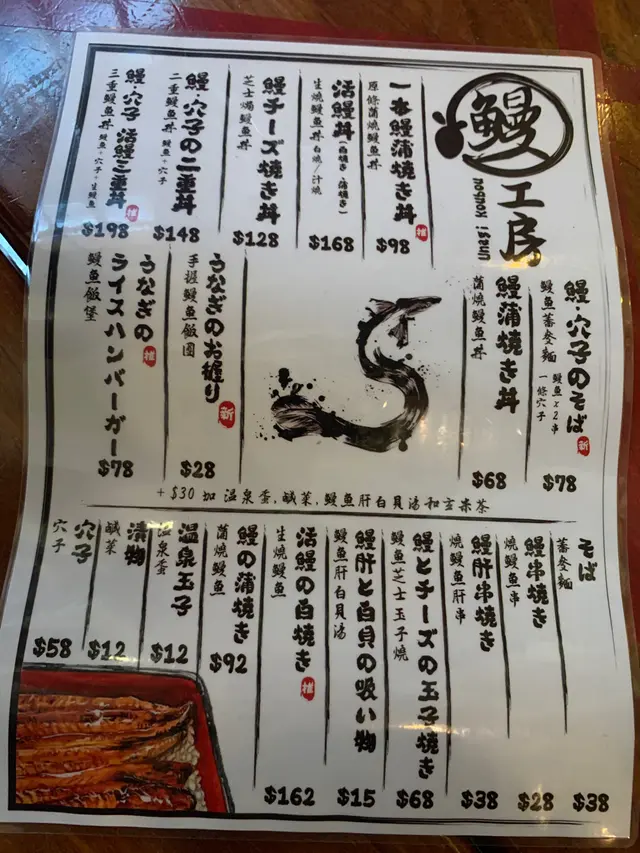 鰻
工房
Unagi Koubou
一本鰻蒲焼き丼 推
原條蒲燒鰻魚丼
$98
活鰻丼(白焼き・蒲焼き)
生燒鰻魚丼 白燒/汁燒
$168
鰻チーズ焼き丼
芝士焗鰻魚丼
$128
鰻・穴子の二重丼
二重鰻魚丼 鰻魚+穴子
$148
鰻・穴子 活鰻三重丼 推
三重鰻魚丼 鰻魚+穴子+生鰻魚
$198
鰻・穴子のそば 新
鰻魚蕎麥麵 鰻魚x2串 一條穴子
$78
鰻蒲焼き丼
蒲燒鰻魚丼
$68
うなぎのお握り 新
手握鰻魚飯團
$28
うなぎの 推
ライスハンバーガー
鰻魚飯堡
$78
+$30加溫泉蛋,鹹菜,鰻魚肝白貝湯和玄米茶
そば
蕎麥麵
$38
鰻串焼き
燒鰻魚串
$28
鰻肝串焼き
燒鰻魚肝串
$38
鰻とチーズの玉子焼き
鰻魚芝士玉子燒
$68
鰻肝と白貝の吸い物
鰻魚肝白貝湯
$15
活鰻の白焼き 推
生燒鰻魚
$162
鰻の蒲焼き
蒲燒鰻魚
$92
温泉玉子
溫泉蛋
$12
漬物
鹹菜
$12
穴子
穴子
$58